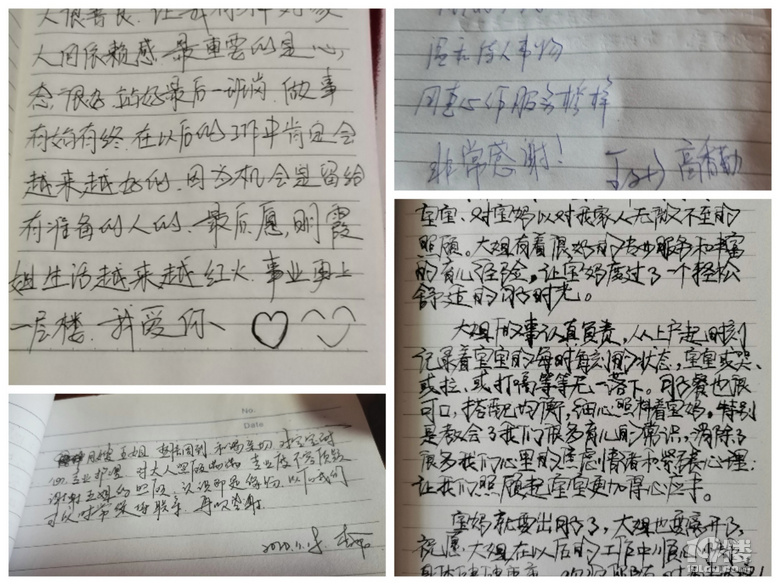 人很善良.让我有种对家
人间依赖感.最重要的是心
态很好.站好最后一班岗.做事
有始有终.在以后的工作中肯定会
越来越好的.因为机会是留给
有准备的人的.最后愿,明霞
姐生活越来越红火.事业更上
一层楼.我爱你、
温和待人事物
用真心作服务榜样
非常感谢!
高香勤
宝宝、对宝妈以对我家人无微不至的
照顾。大姐有着很好的专业服务和丰富
的育儿经验。让宝妈度过了一个轻松
舒适的月子时光。
大姐干的事认真负责,从上户起时刻
记录着宝宝的每时每刻的状态,宝宝或哭、
或拉、或打嗝等等无一落下。月子餐也很
可口,搭配均衡,细心照料着宝妈。特别
是教会了我们很多育儿的常识,消除了
很多我们心里的焦虑情绪和紧张心理.
让我们照顾起宝宝更加得心应手。
宝妈就要出月了,大姐也要离开了
祝愿大姐在以后的工作中顺
No.
Date
心专业护理 对大人照顾
谢谢王姐的照顾 认识即是缘份 以后我们
可以时常保持联系 再次感谢
19楼
19lou.com